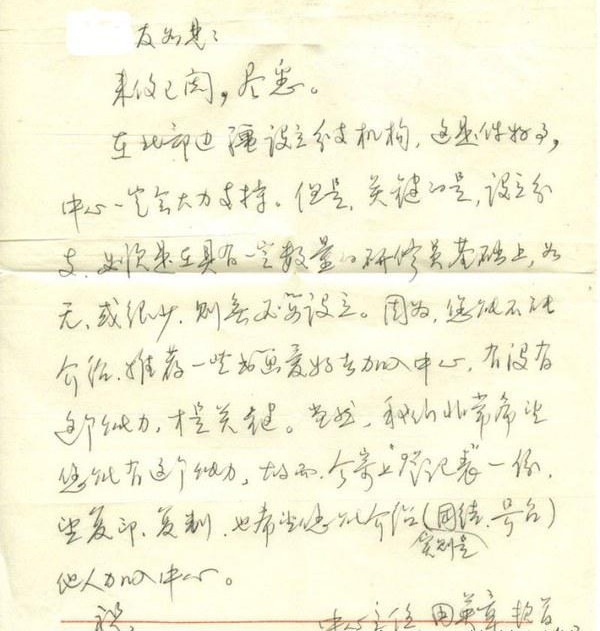 友如兄：
来信已阅，尽悉。
在北部边疆设立分支机构，这是件好事，
中心一定会大力支持。但是，关键的是，设立分
支，必须是在具有一定数量的研修员基础上，如
无，或很少，则无必要设立。因为，您能不能
介绍、推荐一些书画爱好者加入中心，有没有
这个能力，才是关键。当然，我们非常希望
您能有这个能力，故而，今寄上"登记表"一份，
望复印、复制，也希望您能介绍（团结、号召）
实则是
他人加入中心。
祝：
中心主任 周英章